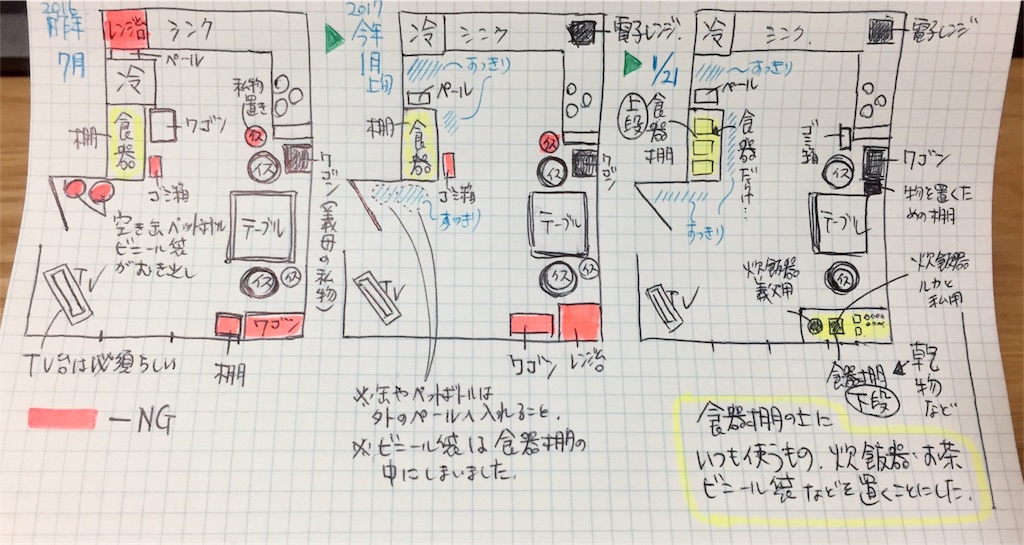 2016
昨年
7月
レンジ台
シンク
ペール
冷
私物
置き
イス
棚
食器
ワゴン
ゴミ箱
イス
ワゴン(義母の私物)
空き缶ペットボトル
ビニール袋
がむき出し
テーブル
イス
イス
TV
ワゴン
棚
TV台は必須らしい
ーNG
2017
今年
1月
上旬
冷
シンク
電子レンジ.
〜すっきり
ペール
棚
食器
イス
イス
ゴミ箱
ワゴン
すっきり
テーブル
イス
イス
TV
ワゴン
レンジ台
※缶やペットボトルは
外のペールへ入れること.
※ビニール袋は食器棚の
中にしまいました.
1/21
冷
シンク.
電子レンジ
〜すっきり
ペール
上段
食器棚
食器だけ…
ゴミ箱
イス
ワゴン
物を置くた
めの棚
〜すっきり
テーブル
イス
TV
炊飯器
義父用
炊飯器
ルカと
私用
食器棚
下段
乾物など
食器棚の上に
いつも使うもの.炊飯器・お茶
ビニール袋などを置くことにした.